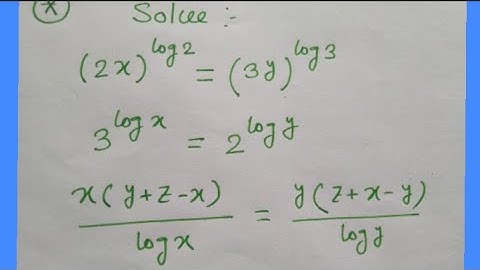 (*) Solve :-
(2x)^{log 2} = (3y)^{log 3}
3^{log x} = 2^{log y}
x(y+z-x)/log x = y(z+x-y)/log y